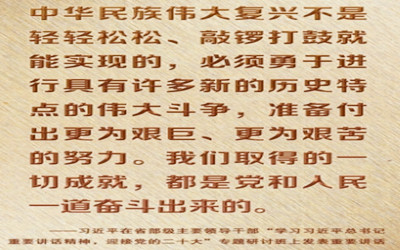 中华民族伟大复兴不是
轻轻松松、敲锣打鼓就
能实现的，必须勇于进
行具有许多新的历史特
点的伟大斗争，准备付
出更为艰巨、更为艰苦
的努力。我们取得的一
切成就，都是党和人民
一道奋斗出来的。
——习近平在省部级主要领导干部“学习习近平总书记
重要讲话精神，迎接党的二十大”专题研讨班上发表重要讲话